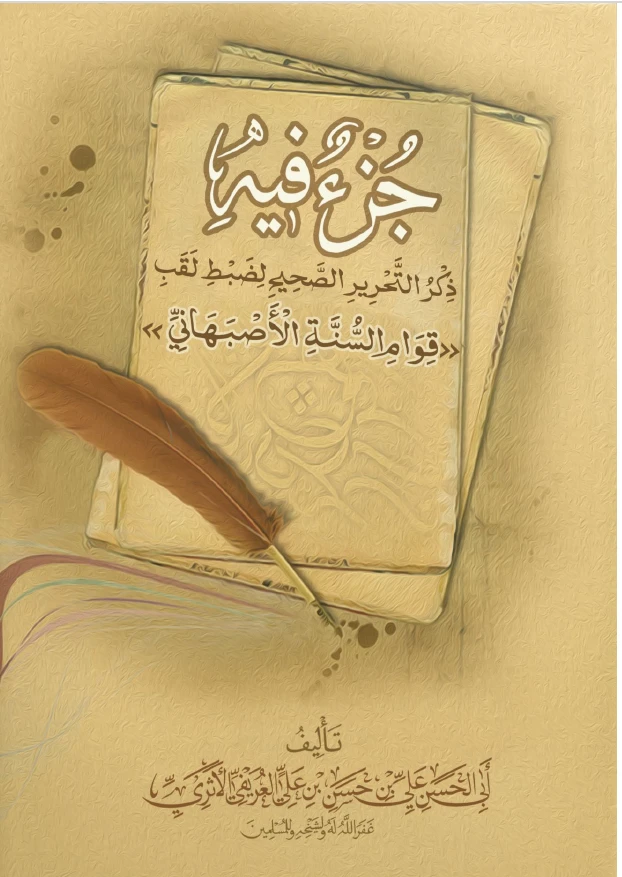 جُزْءٌ فِيهِ
ذِكْرُ التَّحْرِيرِ الصَّحِيحِ لِضَبْطِ لَقَبِ
«قِوَامِ السُّنَّةِ الْأَصْبَهَانِيِّ»
تَأْلِيفُ
أَبِي الْحَسَنِ عَلِيِّ بْنِ حَسَنِ بْنِ عَلِيٍّ الْعُرَيْفِيِّ الْأَثَرِيِّ
غَفَرَ اللَّهُ لَهُ وَلِشَيْخِهِ وَلِلْمُسْلِمِينَ